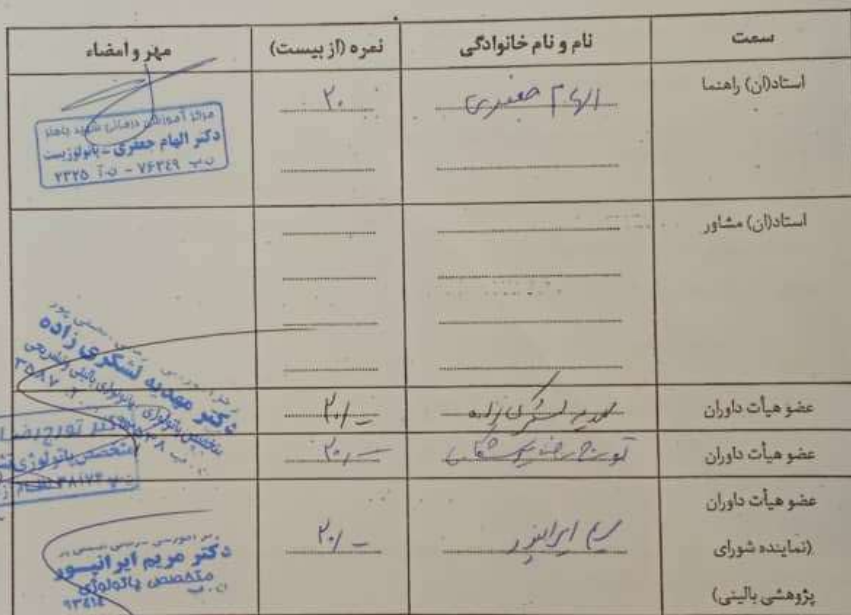 سمت	نام و نام خانوادگی	نمره (از بیست)	مهر و امضاء
استاد(ان) راهنما	الهام جعفری	۲۰
مرکز آموزشی درمانی شهید باهنر
دکتر الهام جعفری - پاتولوژیست
ن.پ ۷۶۳۴۹ - ن.آ ۲۳۲۵
استاد(ان) مشاور
عضو هیأت داوران	مهدیه لشکری زاده	۲۰/-
دکتر مهدیه لشکری زاده
متخصص پاتولوژی
عضو هیأت داوران	تورج رضا	۲۰/-
دکتر تورج رضا
متخصص پاتولوژی
۳۸۱۷۴
عضو هیأت داوران
(نماینده شورای
پژوهشی بالینی)
مریم ایرانپور	۲۰/-
دکتر مریم ایرانپور
متخصص پاتولوژی